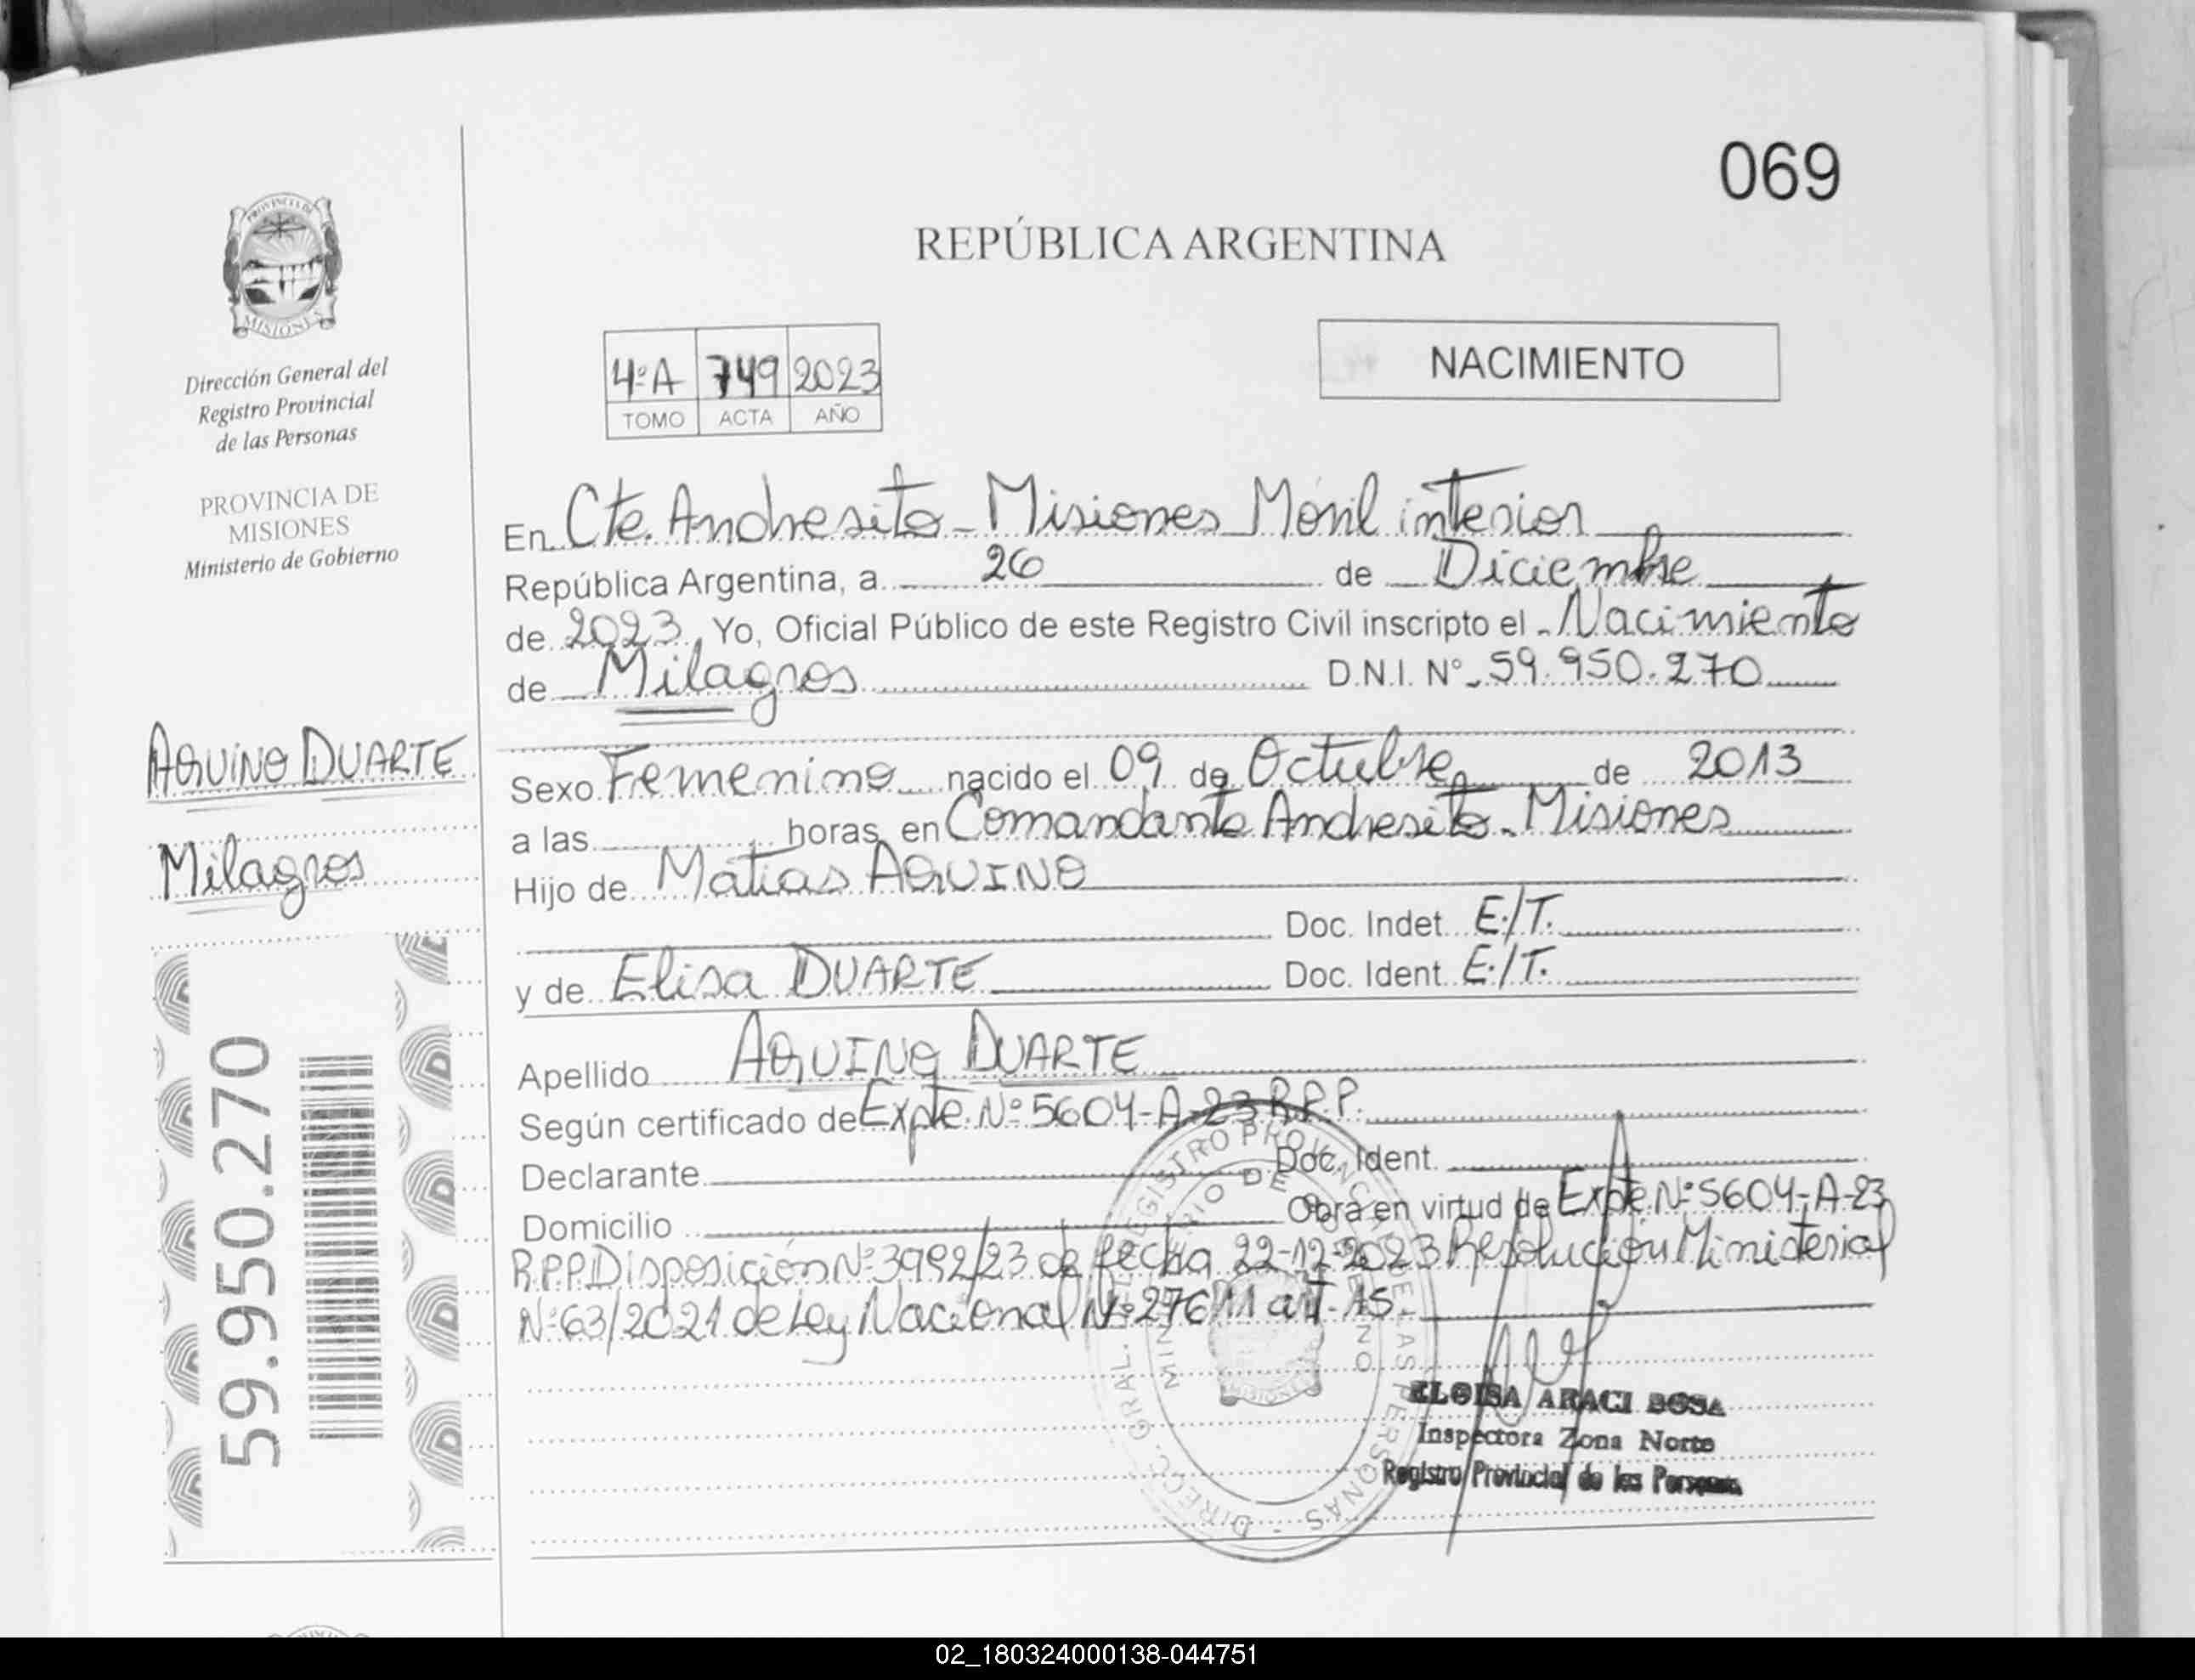 069
PROVINCIA DE
MISIONES
Dirección General del
Registro Provincial
de las Personas
PROVINCIA DE
MISIONES
Ministerio de Gobierno
AQUINO DUARTE
Milagros
59.950.270
REPÚBLICA ARGENTINA
4ºA 749 2023
TOMO ACTA AÑO
NACIMIENTO
En Cte. Andresito - Misiones Móvil interior
República Argentina, a 26 de Diciembre
de 2023, Yo, Oficial Público de este Registro Civil inscripto el Nacimiento
de Milagros D.N.I. Nº 59.950.270
Sexo Femenino nacido el 09 de Octubre de 2013
a las horas, en Comandante Andresito - Misiones
Hijo de Matias AQUINO
Doc. Indet. E./T.
y de Elisa DUARTE Doc. Ident. E./T.
Apellido AQUINO DUARTE
Según certificado de Expte. Nº 5604-A-23 R.P.P.
Declarante Doc. Ident.
Domicilio Obra en virtud de Expte. Nº 5604-A-23
R.P.P Disposición Nº 3992/23 de fecha 22-12-2023 Resolución Ministerial
Nº 63/2021 de Ley Nacional Nº 27611 art. 15.
DIRECC. GRAL. REGISTRO PROVINCIAL DE LAS PERSONAS
MISIONES
ELOISA ARACI SOSA
Inspectora Zona Norte
Registro Provincial de las Personas
02_180324000138-044751